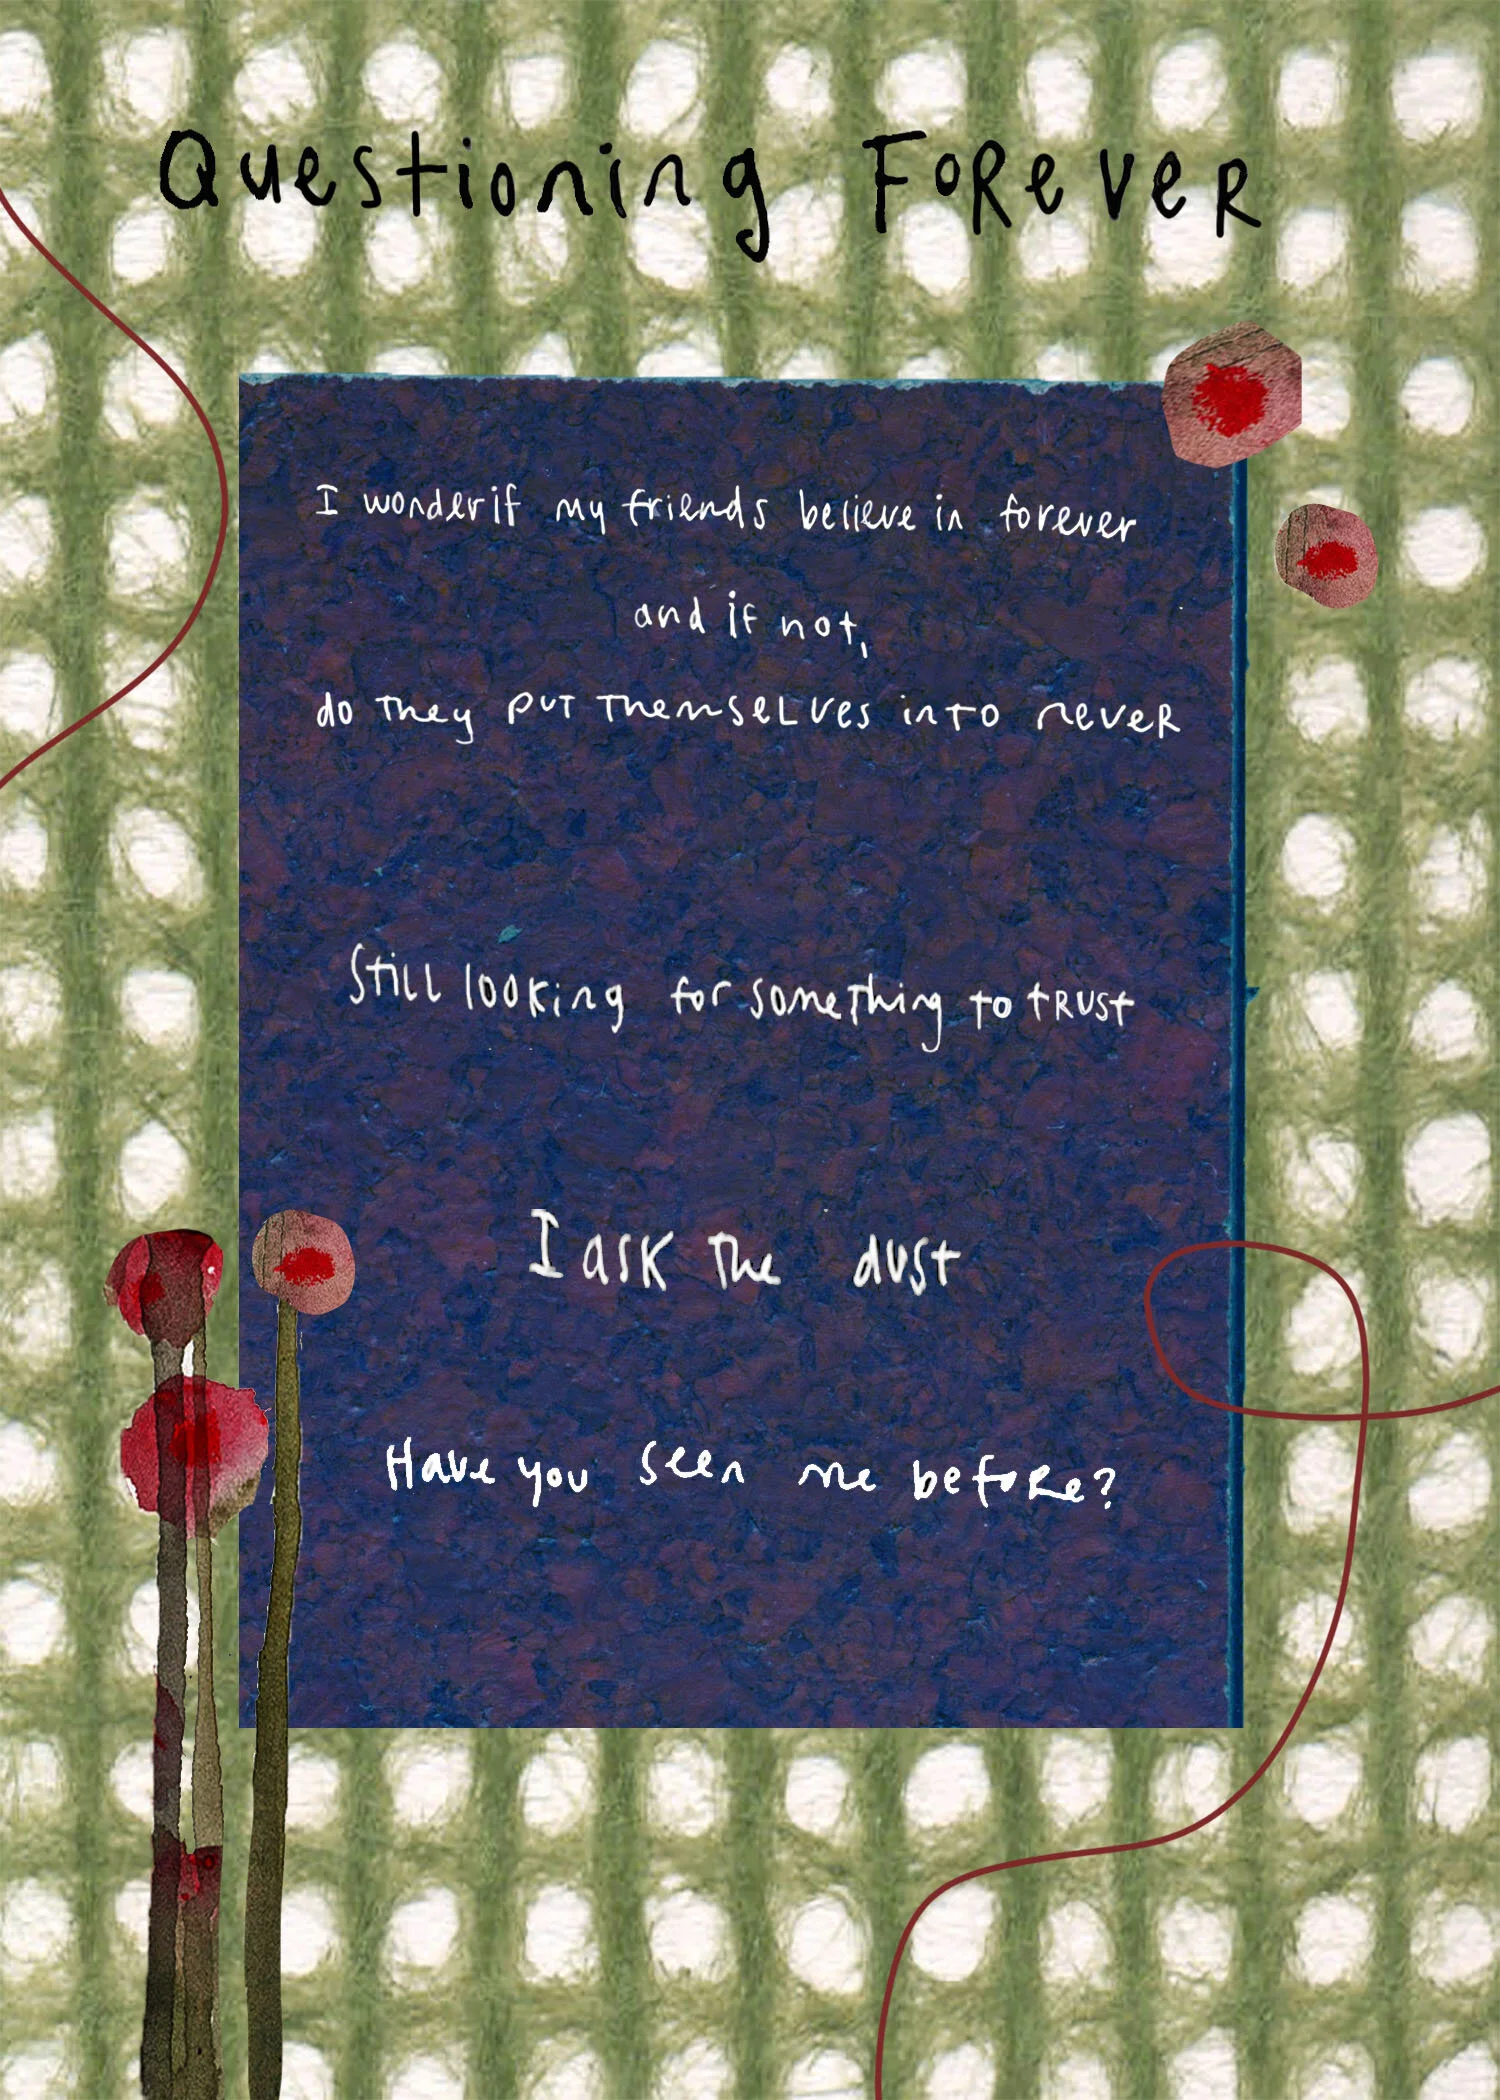 Questioning Forever
I wonder if my friends believe in forever
and if not,
do they put themselves into never
Still looking for something to trust
I ask the dust
Have you seen me before?